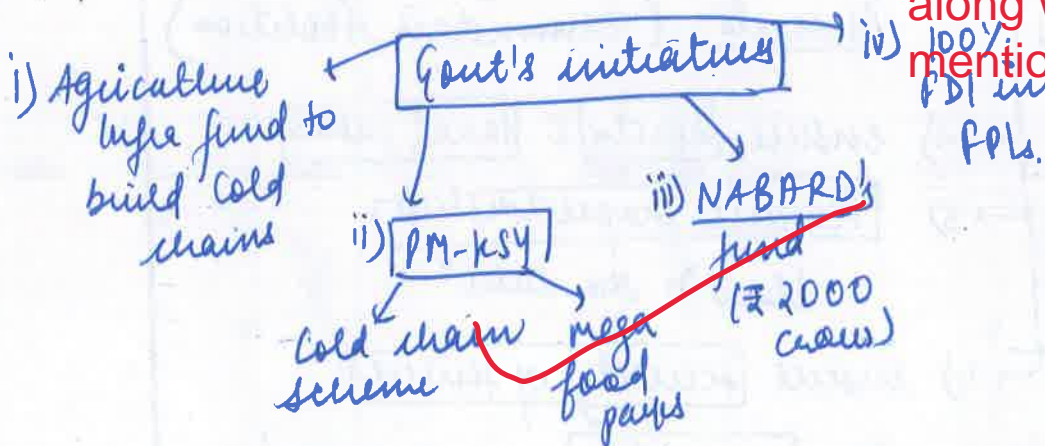 Govt's initiatives
i) Agriculture
Infra fund to
build cold
chains
ii) PM-KSY
Cold chain
scheme
mega
food
parks
iii) NABARD's
fund
(₹ 2000
crores)
iv) 100%
FDI in
FPIs.
along
mentio